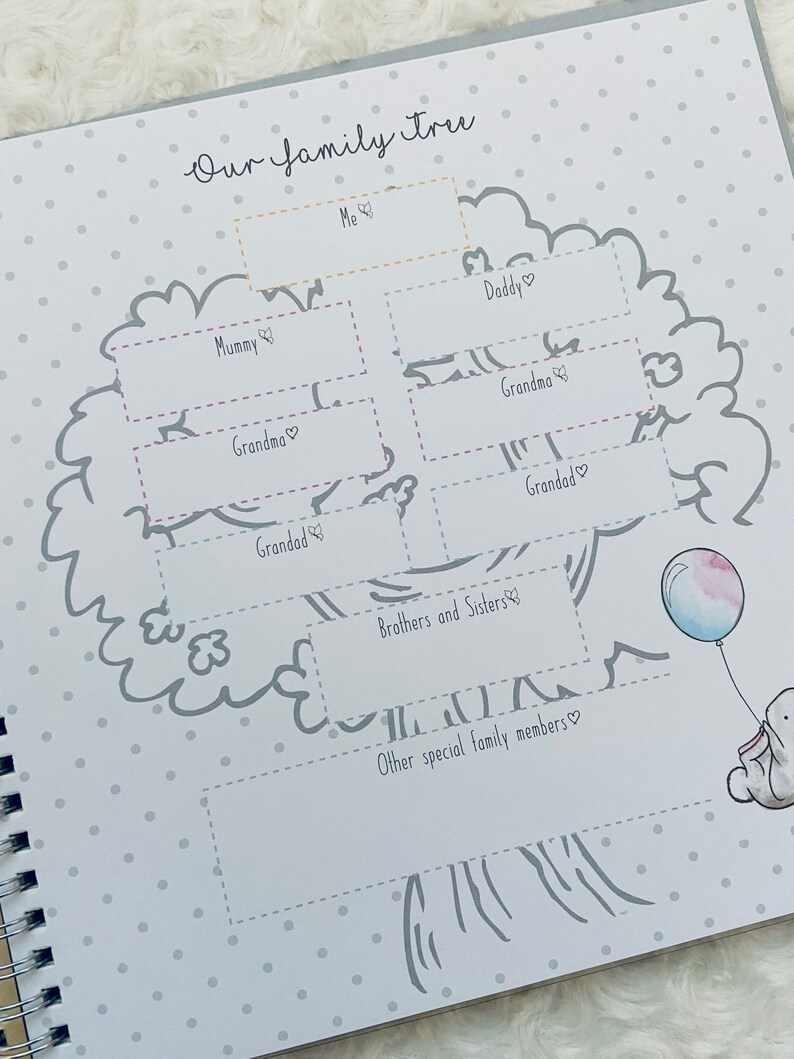 Our family tree
Me
Daddy
Mummy
Grandma
Grandma
Grandad
Grandad
Brothers and Sisters
Other special family members